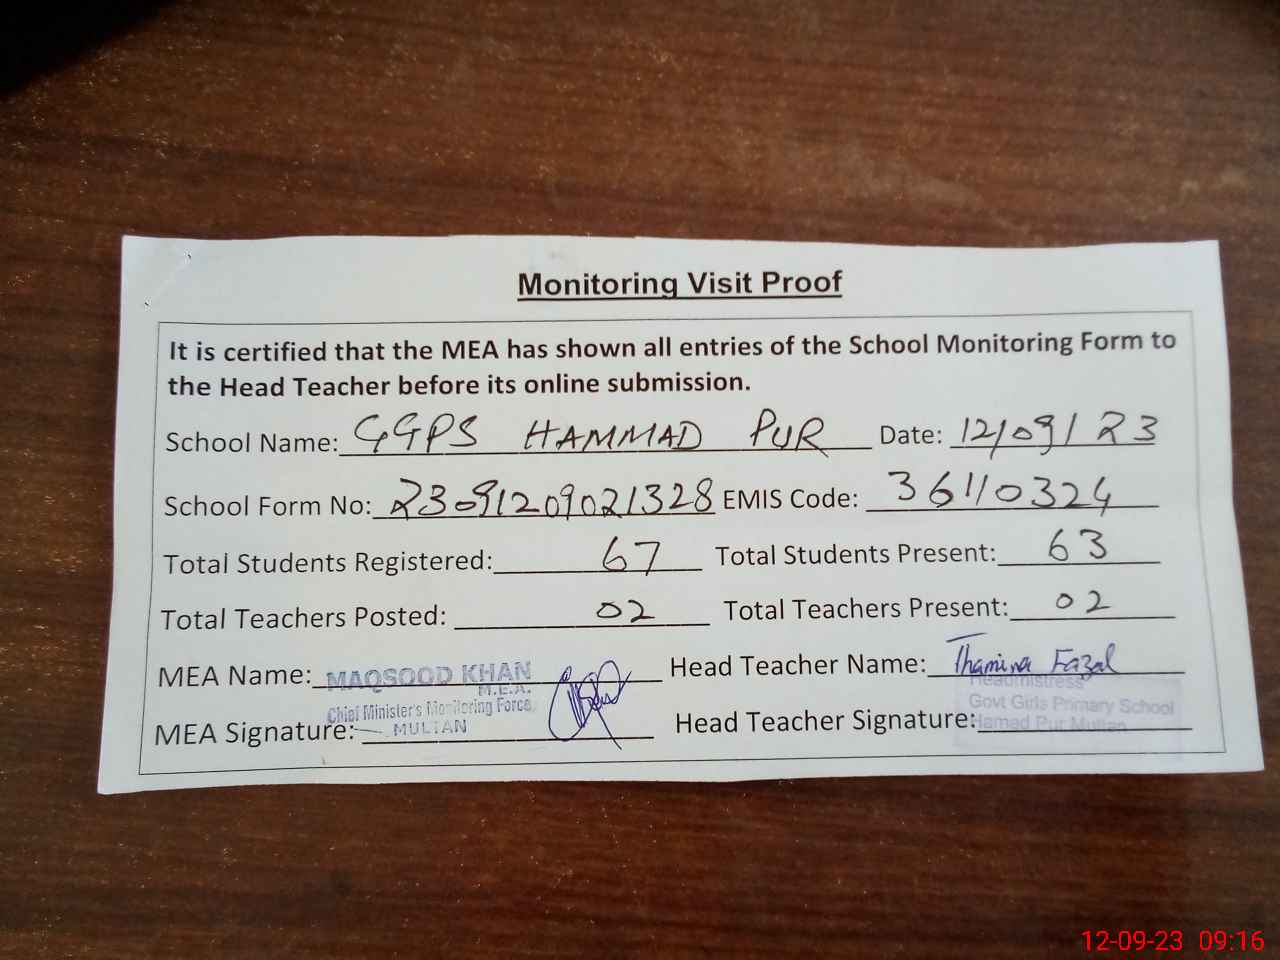 Monitoring Visit Proof
It is certified that the MEA has shown all entries of the School Monitoring Form to
the Head Teacher before its online submission.
School Name: GGPS HAMMAD PUR Date: 12/09/23
School Form No: 23091209021328 EMIS Code: 36110324
Total Students Registered: 67 Total Students Present: 63
Total Teachers Posted: 02 Total Teachers Present: 02
MEA Name: MAQSOOD KHAN Head Teacher Name: Thamina Fazal
M.E.A. Headmistress
Chief Minister's Monitoring Force Govt Girls Primary School
MEA Signature: MULTAN Head Teacher Signature: Hamad Pur Multan
12-09-23 09:16